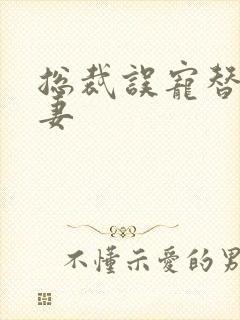 总裁误寵替
妻
不懂示愛的男